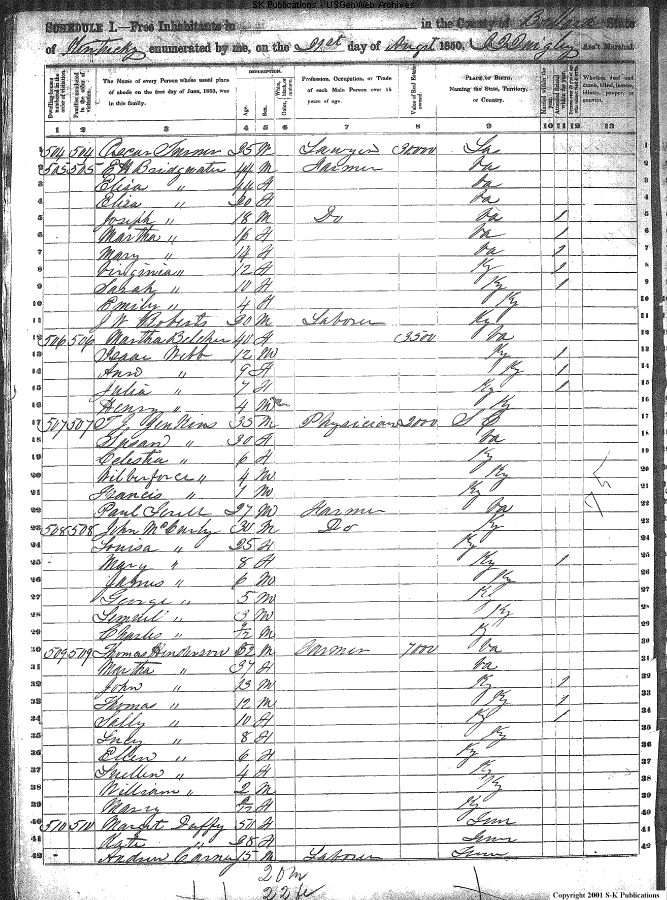 SK Publications / USGenWeb Archives
SCHEDULE I.—Free Inhabitants in in the County of Ballard State
of Kentucky enumerated by me, on the 21st day of Augst 1850. Quigley Ass't Marshal.
DESCRIPTION.
Dwelling-houses numbered in the order of visitation.
Families numbered in the order of visitation.
The Name of every Person whose usual place of abode on the first day of June, 1850, was in this family.
Age.
Sex.
Color, White, black, or mulatto.
Profession, Occupation, or Trade of each Male Person over 15 years of age.
Value of Real Estate owned.
PLACE OF BIRTH, Naming the State, Territory, or Country.
Married within the year.
Attended School within the year.
Whether deaf and dumb, blind, insane, idiotic, pauper, or convict.
1 2 3 4 5 6 7 8 9 10 11 12 13
1 504 504 Oscar Turner 25 M Lawyer 30000 La 1
2 505 505 E H Bridgwater 44 M Farmer Va 2
3 Eliza " 44 F Va 3
4 Eliza " 20 F Va 4
5 Joseph " 18 M Do Va 1 5
6 Martha " 16 F Va 1 6
7 Mary " 14 F Va 1 7
8 Virginia " 12 F Ky 1 8
9 Sarah " 10 F Ky 1 9
10 Emily " 4 F Ky 10
11 J W Roberts 20 M Laborer Ky 11
12 506 506 Martha Belcher 40 F 3500 Va 12
13 Isaac Webb 12 M Ky 1 13
14 Ann " 9 F Ky 1 14
15 Julia " 7 F Ky 1 15
16 Henry " 4 M Ky 16
17 507 507 T J Jenkins 35 M Physician 2000 S C 17
18 Susan " 30 F Va 18
19 Celestia " 6 F Ky 19
20 Wilberforce " 4 M Ky 20
21 Francis " 1 M Ky 21
22 Paul 27 M Farmer Va 22
23 508 508 John McCurly 30 M Do Ky 23
24 Louisa " 25 F Ky 24
25 Mary " 8 F Ky 1 25
26 James " 6 M Ky 26
27 George " 5 M Ky 27
28 Lemuel " 3 M Ky 28
29 Charles " 2/12 M Ky 29
30 509 509 Thomas Henderson 52 M Farmer 7000 Va 30
31 Martha " 37 F Va 31
32 John " 13 M Ky 1 32
33 Thomas " 12 M Ky 1 33
34 Sally " 10 F Ky 1 34
35 Lucy " 8 F Ky 35
36 Ellen " 6 F Ky 36
37 Suellen " 4 F Ky 37
38 William " 2 M Ky 38
39 Mary 2/12 F Ky 39
40 510 510 Margt Duffy 51 F Tenn 40
41 Kate " 28 F Tenn 41
42 Andrew Carney 15 M Laborer Tenn 42
20 m
22 f
Copyright 2001 S-K Publications